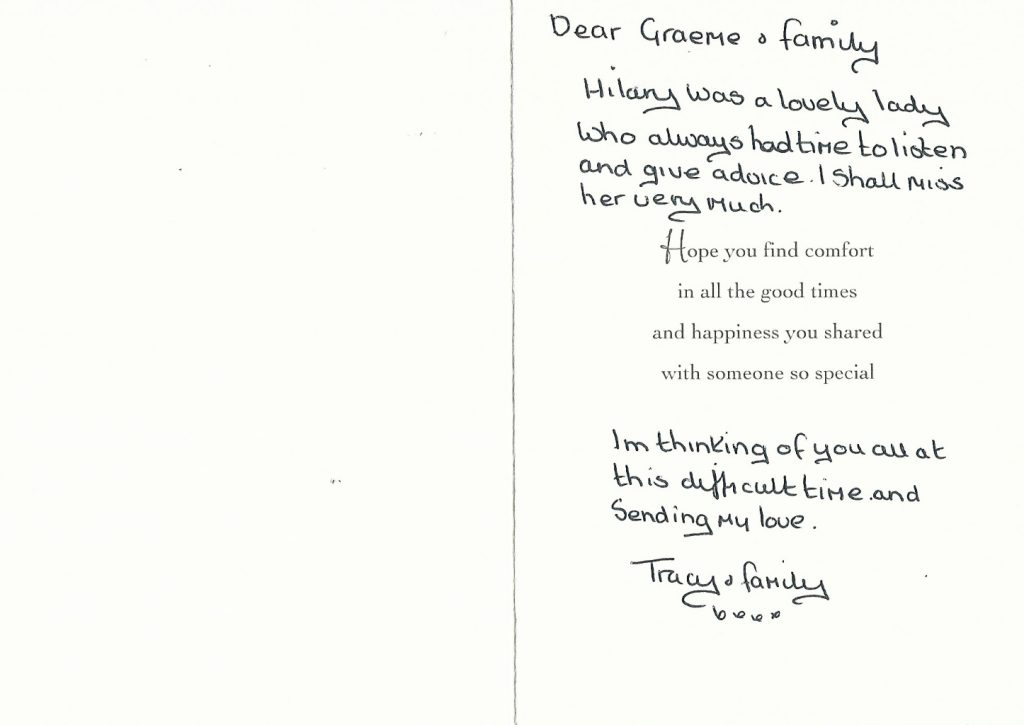 Dear Graeme & family
Hilary was a lovely lady
who always had time to listen
and give advice. I shall miss
her very much.
Hope you find comfort
in all the good times
and happiness you shared
with someone so special
Im thinking of you all at
this difficult time. and
Sending my love.
Tracy & family
xxxx